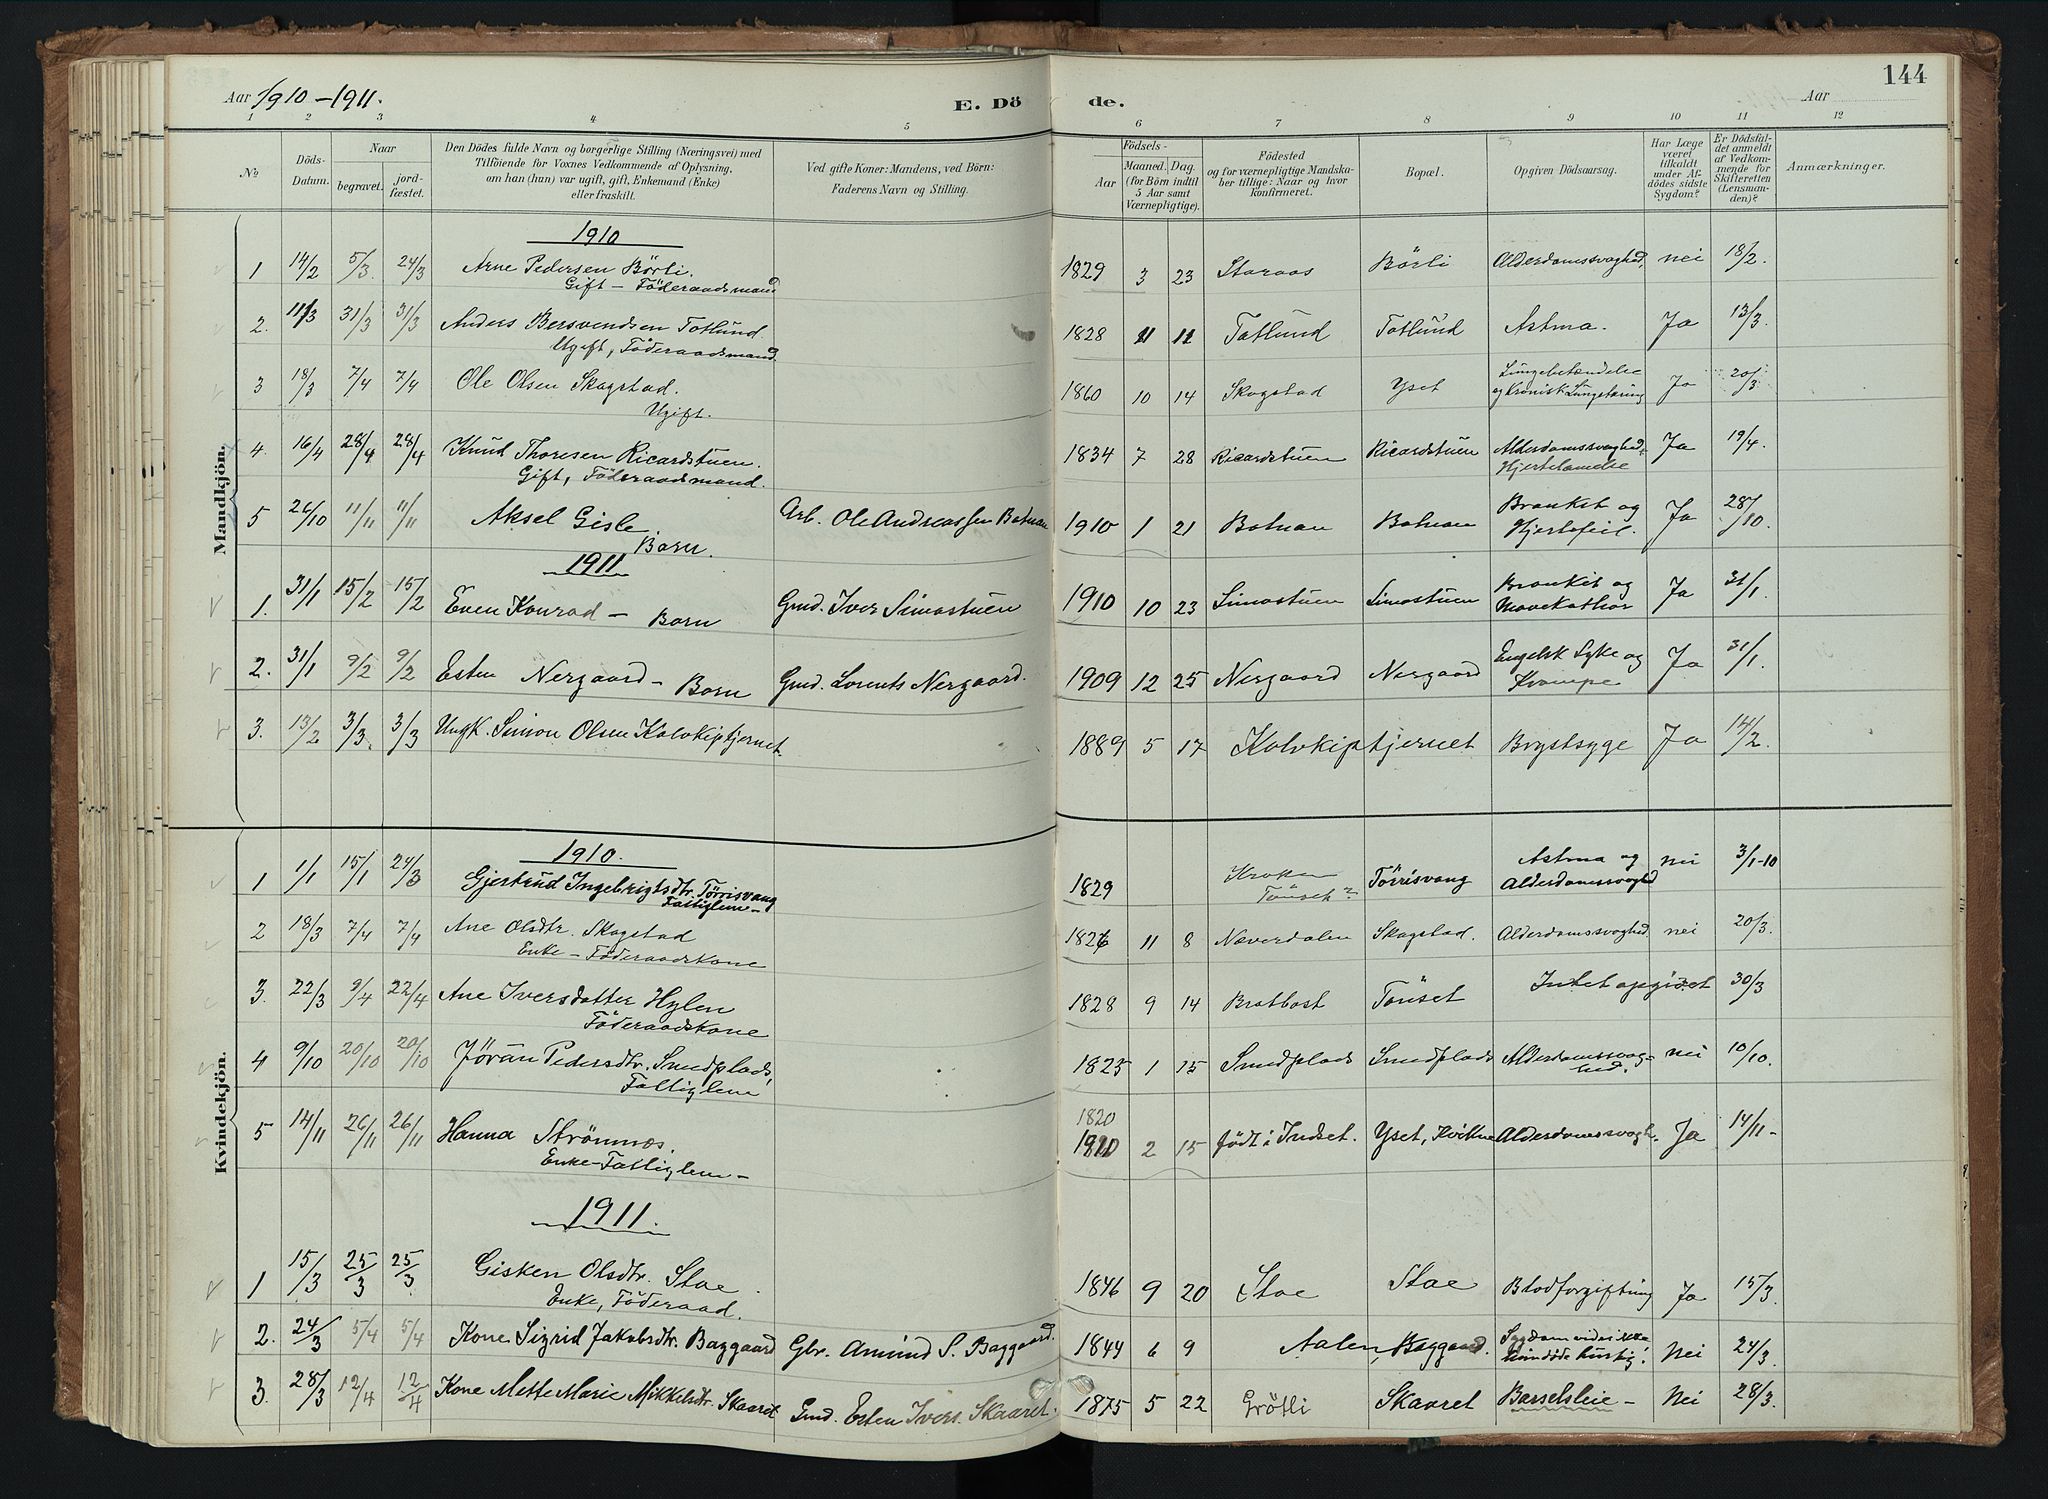 Aar 1910-1911.
E. Dö de.
144
Aar
1 2 3 4 5 6 7 8 9 10 11 12
No
Döds-Datum.
Naar
begravet. jord-fæstet.
Den Dödes fulde Navn og borgerlige Stilling (Næringsvei) med
Tilföiende for Voxnes Vedkommende af Oplysning,
om han (hun) var ugift, gift, Enkemand (Enke)
eller fraskilt.
Ved gifte Koner: Mandens, ved Börn:
Faderens Navn og Stilling.
Födsels-
Aar
Maaned. Dag.
(for Börn indtil
5 Aar samt
Værnepligtige).
Födested
og for værnepligtige Mandska-
ber tillige: Naar og hvor
konfirmeret.
Bopæl.
Opgiven Dödsaarsag.
Har Læge
været
tilkaldt
under Af-
dödes sidste
Sygdom?
Er Dödsfal-
det anmeldt
af Vedkom-
mende for
Skifteretten
(Lensman-
den)?
Anmærkninger.
Mandkjön.
1910
1 14/2 5/3. 24/3 Arne Pedersen Börli. 1829 3 23 Staraas Börli Alderdomssvaghed, nei 18/2.
Gift - Föderaadsmand
2. 11/3 31/3 31/3 Anders Bersvendsen Totlund. 1828 11 11 Totlund Totlund Astma. Ja 13/3.
Ugift, Föderaadsmand.
3 18/3 7/4 7/4 Ole Olsen Skogstad. 1860 10 14 Skogstad Yset Lungebetændelse Ja 20/3
Ugift. og Kronisk Lungetæring
4. 16/4 28/4 28/4 Knud Thoresen Ricardstuen. 1834 7 28 Ricardstuen Ricardstuen Alderdomssvaghed, Ja 19/4.
Gift, Föderaadsmand. Hjertelamelse
5 26/10 11/11 11/11 Aksel Gisle, Arb. Ole Andreassen Botnan 1910 1 21 Botnan Botnan Bronkit og Ja 28/10.
Barn. Hjertefeil.
1911
1. 31/1 15/2 15/2 Even Konrad - Barn Gmd. Iver Simastuen 1910 10 23 Simostuen Simostuen Bronkit og Ja 31/1.
Mavekathar
2. 31/1 9/2 9/2 Esten Nergaard - Barn Gmd. Lorents Nergaard. 1909 12 25 Nergaard Nergaard Engelsk Syke og Ja 31/1.
Krampe
3. 13/2 3/3. 3/3 Ungk. Simon Olsen Kalvkiptjernet 1889 5 17 Kalvkiptjernet Brystsyge Ja 14/2.
Kvindekjön.
1910.
1 1/1 15/1 24/3 Gjertrud Ingebrigtsdtr. Tørrisvang 1829 Kroken Törrisvang Astma og nei 3/1-10
Fattiglem- Tönset? Alderdomssvaghed
2 18/3 7/4 7/4 Ane Olsdtr. Skogstad 1826 11 8 Næverdalen Skogstad. Alderdomssvaghed nei 20/3.
Enke - Föderaadskone
3. 22/3 9/4 22/4 Ane Iversdatter Hylen 1828 9 14 Bratbost Tönset Intet opgivet 30/3
Föderaadskone
4 9/10 20/10 20/10 Jöran Pedersdtr. Smedplads, 1825 1 15 Smedplads Smedplads Alderdomssvag- nei 10/10.
Fattiglem hed.
1820
5 14/11 26/11 26/11 Hanna Strömnæs, 1910 2 15 født i Indset. Yset, Kvikne Alderdomssvagh. Ja 14/11-
Enke-Fattiglem-
1911.
1 15/3 25/3 25/3 Gisken Olsdtr. Stae. 1846 9 20 Stoe Stoe Blodforgiftning Ja 15/3.
Enke, Föderaad.
2. 24/3 5/4 5/4 Kone Sigrid Jakobsdtr. Baggaard Gbr. Amund S. Baggaard. 1844 6 9 Aalen, Baggaard. Sygdom vides ikke Nei 24/3.
hun døde hurtig!
3. 28/3 12/4 12/4 Kone Mette Marie Mikkelsdtr. Skaaret Gmd. Esten Ivers. Skaaret. 1875 5 22 Grötli Skaaret Barselsleie - Nei 28/3.